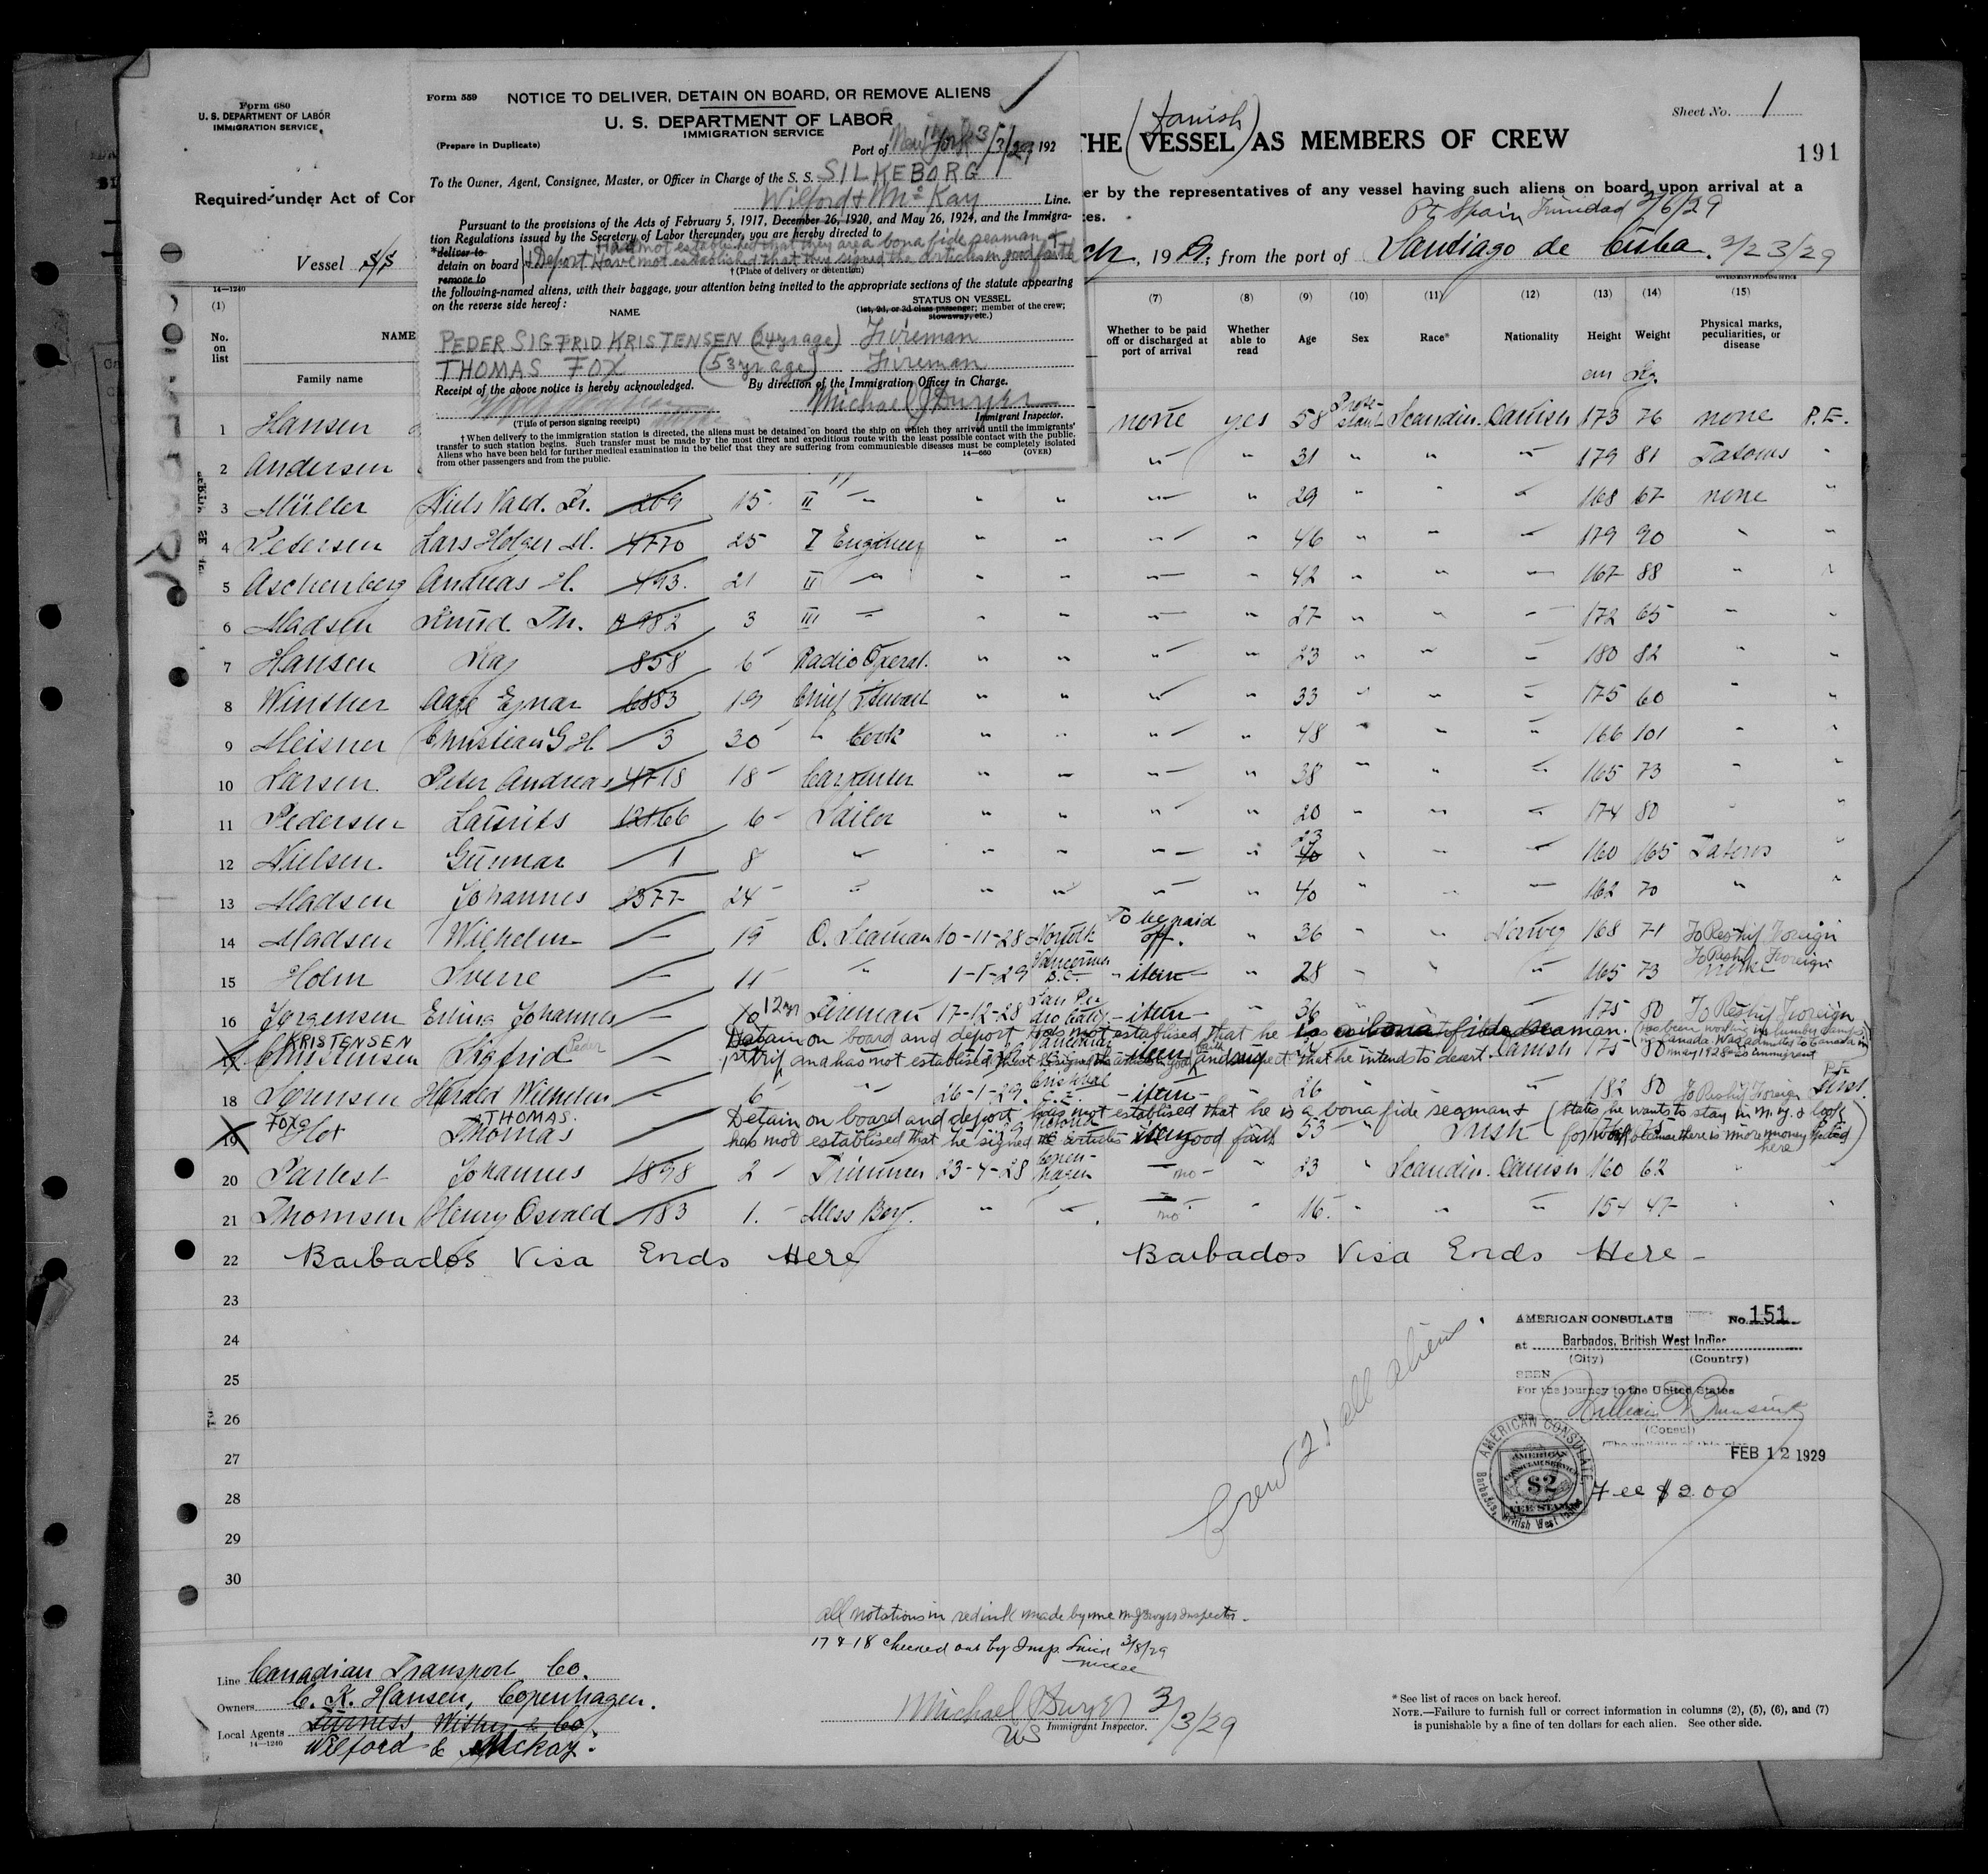 Form 680
U. S. DEPARTMENT OF LABOR
IMMIGRATION SERVICE
Required under Act of Con
Vessel S/S
Form 559 NOTICE TO DELIVER, DETAIN ON BOARD, OR REMOVE ALIENS
U. S. DEPARTMENT OF LABOR
IMMIGRATION SERVICE
(Prepare in Duplicate)
Port of New York 3/3/29 192
To the Owner, Agent, Consignee, Master, or Officer in Charge of the S. S. SILKEBORG
Wilford & McKay Line.
Pursuant to the provisions of the Acts of February 5, 1917, December 26, 1920, and May 26, 1924, and the Immigra-
tion Regulations issued by the Secretary of Labor thereunder, you are hereby directed to
Had not established that they are a bona fide seaman &
*deliver to
detain on board & Deport Have not established that they signed the Articles in good faith
remove to
† (Place of delivery or detention)
the following-named aliens, with their baggage, your attention being invited to the appropriate sections of the statute appearing
on the reverse side hereof:
NAME
STATUS ON VESSEL
(1st, 2d, or 3d class passenger; member of the crew;
stowaway, etc.)
PEDER SIGFRID KRISTENSEN (24 yr age) Fireman
THOMAS FOX (53 yr age) Fireman
Receipt of the above notice is hereby acknowledged. By direction of the Immigration Officer in Charge.
Michael J Dwyer
(Title of person signing receipt) Immigrant Inspector.
† When delivery to the immigration station is directed, the aliens must be detained on board the ship on which they arrived until the immigrants'
transfer to such station begins. Such transfer must be made by the most direct and expeditious route with the least possible contact with the public.
Aliens who have been held for further medical examination in the belief that they are suffering from communicable diseases must be completely isolated
from other passengers and from the public. 14—660 (OVER)
Sheet No. 1
(Danish)
THE (VESSEL) AS MEMBERS OF CREW
191
er by the representatives of any vessel having such aliens on board upon arrival at a
es.
Pt. Spain Trinidad 2/6/29
ch, 1929; from the port of Santiago de Cuba. 2/23/29
GOVERNMENT PRINTING OFFICE
14—1240
(1) (7) (8) (9) (10) (11) (12) (13) (14) (15)
No. on list
NAME
Family name
Whether to be paid off or discharged at port of arrival
Whether able to read
Age
Sex
Race*
Nationality
Height
Weight
Physical marks, peculiarities, or disease
cm kg.
1 Hansen none yes 58 Prote-stant Scandin. Danish 173 76 none P.E.
2 Andersen " " 31 " " " 179 81 Tatoos "
3 Müller Niels Vald. Fr. 209 15 II " " " " " 29 " " " 168 67 none "
4 Petersen Lars Holger M. 4770 25 I Engineer " " " " 46 " " " 179 90 " "
5 Aschenberg Andreas H. 493. 21 II " " " " " 42 " " " 167 88 " "
6 Madsen Knud Th. 982 3 III " " " " " 27 " " " 172 65 " "
7 Hansen Kaj 858 6 Radio Operat. " " " " 23 " " " 180 82 " "
8 Winther Aage Ejnar 6883 19 Chief Steward " " " " 33 " " " 175 60 " "
9 Meisner Christian G H 3 30 " Cook " " " " 48 " " " 166 101 " "
10 Larsen Peter Andreas 4718 18 Carpenter " " " " 38 " " " 165 73 " "
11 Pedersen Laurits 12166 6 Sailor " " " " 20 " " " 174 80 " "
12 Nielsen Gunnar 1 8 " " " " " 23 40 " " " 160 165 Tatoos "
13 Madsen Johannes 2377 24 " " " " " 40 " " " 162 70 " "
14 Madsen Wilhelm — 19 O. Seaman 10-11-28 Norfolk To be paid off. " 36 " " Norweg 168 71 To Reship Foreign
15 Holm Sverre — 11 " 1-1-29 Vancouver B.C. - item - " 28 " " " 165 73 To Reship Foreign none
16 Jørgensen Erling Johannes — 12 yr Fireman 17-12-28 San Pedro Calif. - item - " 36 " " 175 80 To Reship Foreign
17 KRISTENSEN Christensen Sigfrid Peder — Detain on board and deport Has not establised that he is a bona fide seaman. (Has been working in lumber camps in Canada. Was admitted to Canada in May 1928 as immigrant
1st trip and has not establised that he signed the articles in good faith and suspect that he intends to desert. Danish 175 80
18 Sørensen Harald Wilhelm — 6 " 26-1-29. Cristobal C.Z. - item - " 26 " " " 182 80 To Reship Foreign
19 FOX Fox THOMAS. Thomas — Detain on board and deport has not establised that he is a bona fide seaman & (States he wants to stay in N.Y. & look
has not establised that he signed the articles in good faith 53 " Irish for work because there is more money here)
20 Parbest Johannes 1898 2 Trimmer 23-4-28 Copen-hagen — no — " 23 " Scandin. Danish 160 62 " "
21 Thomsen Henry Osvald 183 1. Mess Boy. " " — no — " 16. " " " 154 47 " "
22 Barbados Visa Ends Here Barbados Visa Ends Here -
23
24
25
26
27
28
29
30
Crew 21 all aliens.
AMERICAN CONSULATE No. 151
at Barbados, British West Indies
(City) (Country)
SEEN
For the journey to the United States
(Consul)
FEB 12 1929
AMERICAN CONSULATE
Barbados, British West Indies
AMERICAN CONSULAR SERVICE $2 FEE STAMP
Fee $2.00
all notations in red ink made by me M J Dwyer Inspector.
17 & 18 checked out by Insp. 3/8/29
Line Canadian Transport Co.
Owners C. K. Hansen, Copenhagen.
Local Agents Furness, Withy & Co.
14—1240 Wilford & McKay.
Michael J Dwyer 3/3/29
US Immigrant Inspector.
* See list of races on back hereof.
NOTE.—Failure to furnish full or correct information in columns (2), (5), (6), and (7)
is punishable by a fine of ten dollars for each alien. See other side.